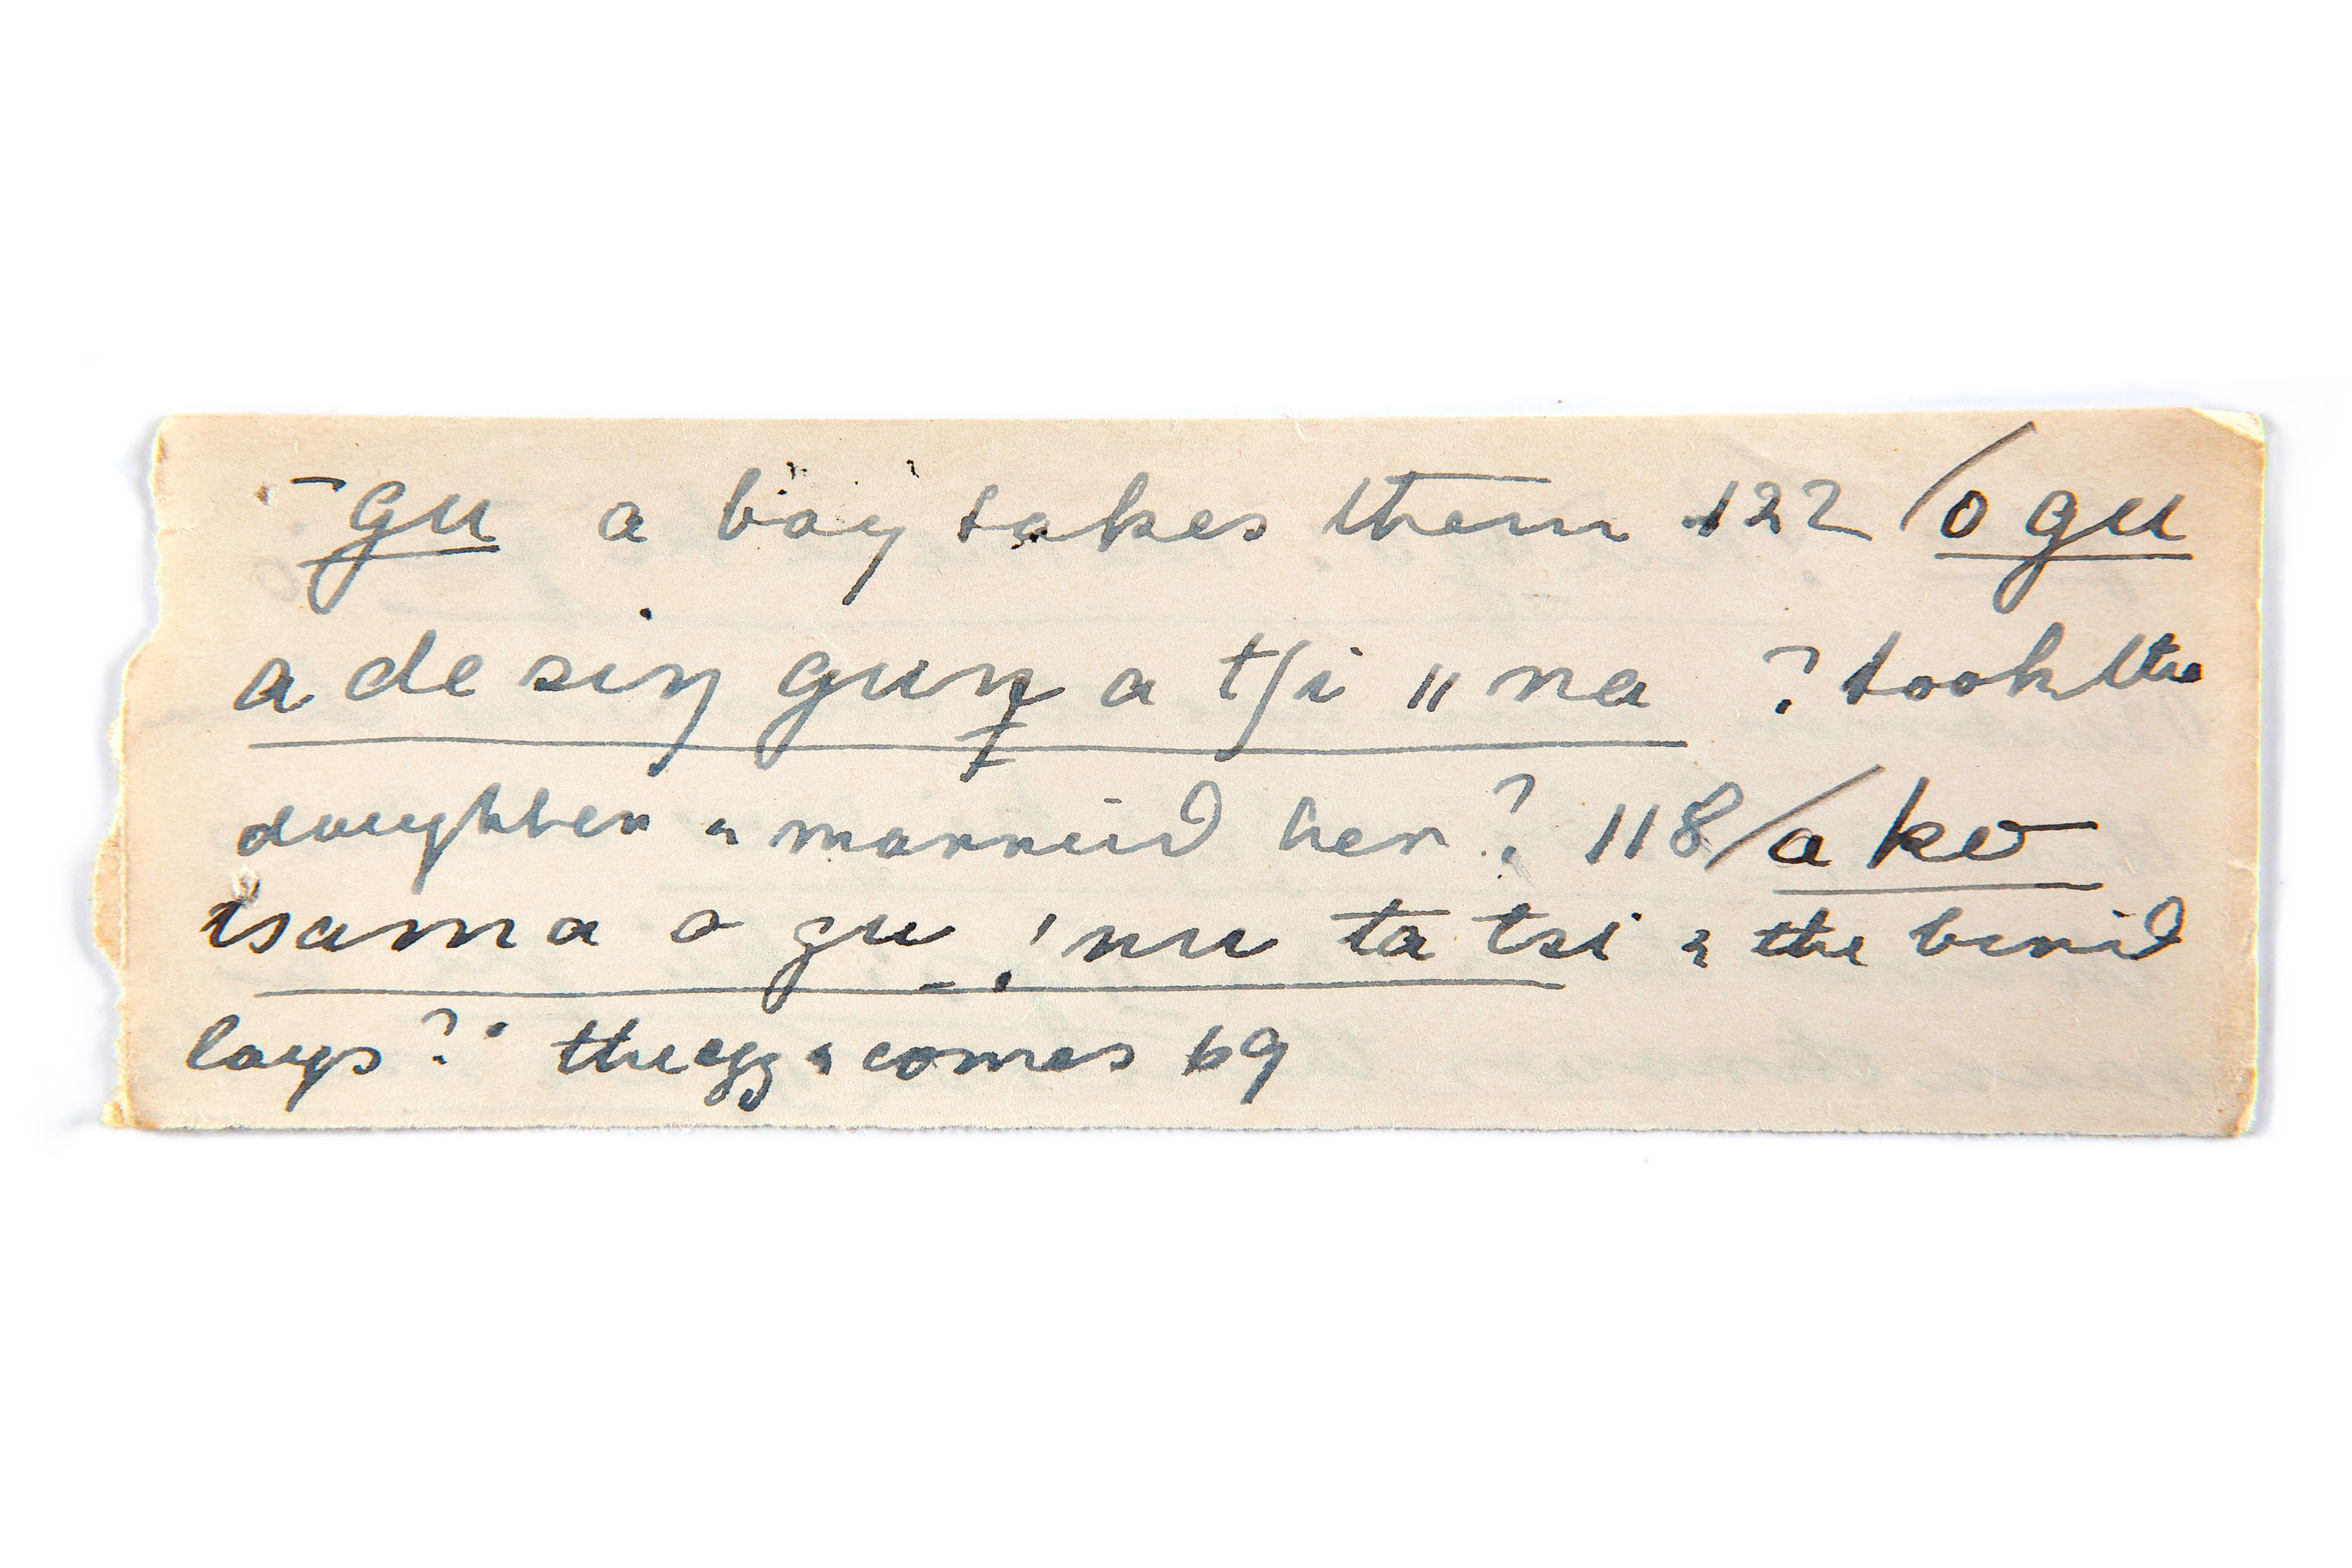 ‾gu a boy takes them 122 / o gu
a de siŋ guŋ a tʃi ǁ na ? took the
daughter & married her? 118 / a ko
tsama o gu ! nu ta tsi & the bird
lays? the egg & comes 69